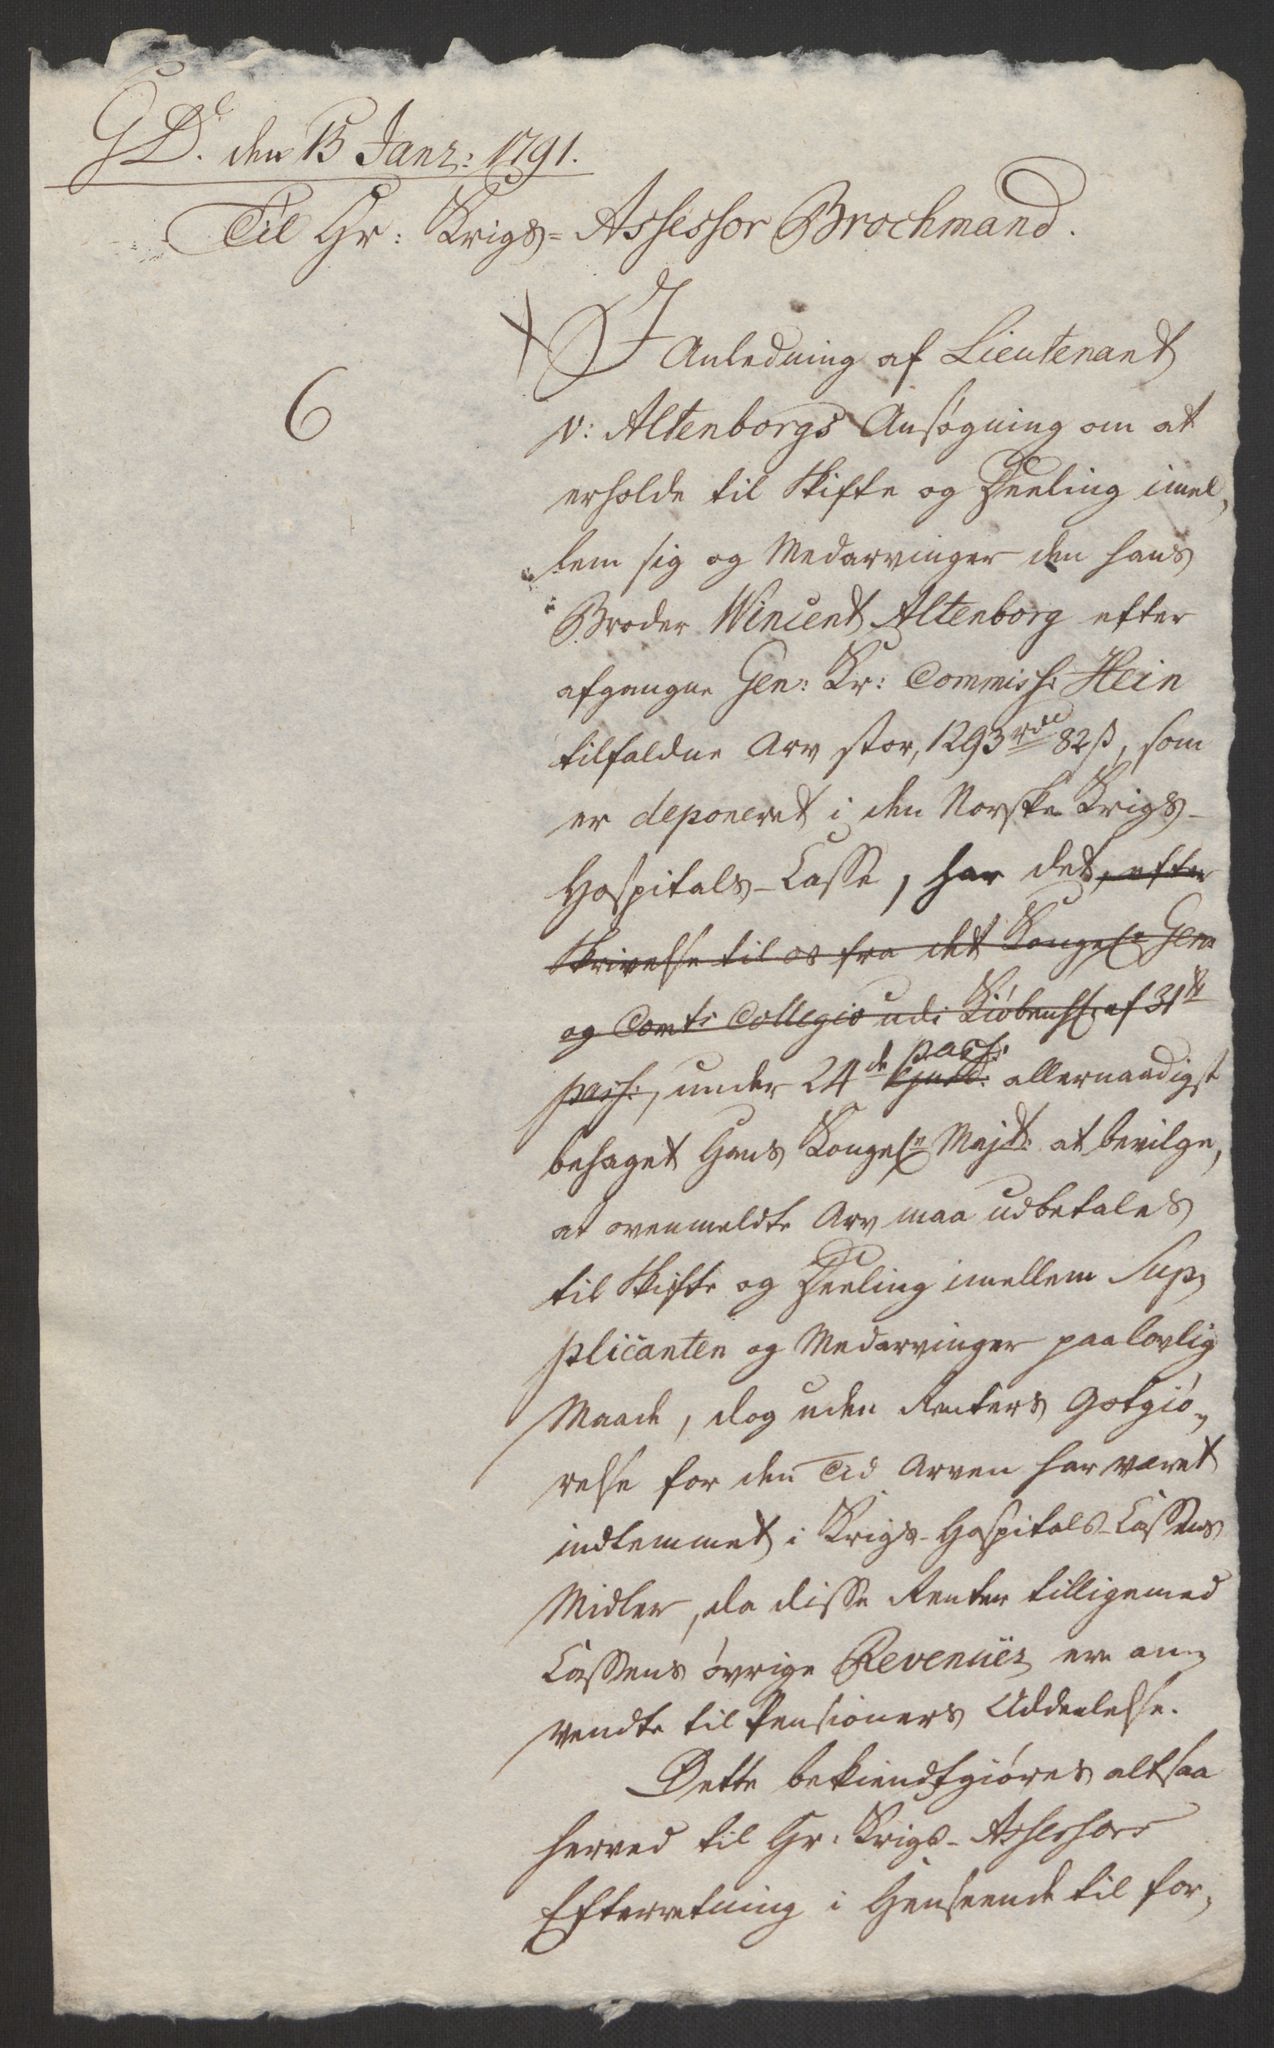 G D. den 15 Janr: 1791.
Til Hr: Krigs-Assessor Brochmand.
6
I Anledning af Lieutenant
v: Altenborgs Ansøgning om at
erholde til Skifte og Deeling imel,
lem sig og Medarvinger den hans
Broder Wincent Altenborg efter
afgangne Gen: Kr: Commiss: Hein
tilfaldne Arv stor, 1293 rdl 82 ß, som
er deponeret i den Norske Krigs-
Hospitals-Casse, har det, efter
Skrivelse til os fra det Kongel: Gen:
og Com: Collegio udi Kiöbenh: af 31te
pass:, under 24de pass: allernaadigst
behaget Hans Kongel: Majt: at bevilge,
at ovenmeldte Arv maa udbetales
til Skifte og Deeling imellem Sup,
plicanten og Medarvinger paa lovlig
Maade, dog uden Renters Gotgiö,
relse for den Tid Arven har været
indlemmet i Krigs-Hospitals-Cassens
Midler, da disse Renter tilligemed
Cassens övrige Revenüer ere an,
vendte til Pensioners Uddeelelse.
Dette bekiendtgiöres altsaa
herved til Hr: Krigs-Assessors
Efterretning i Henseende til for,